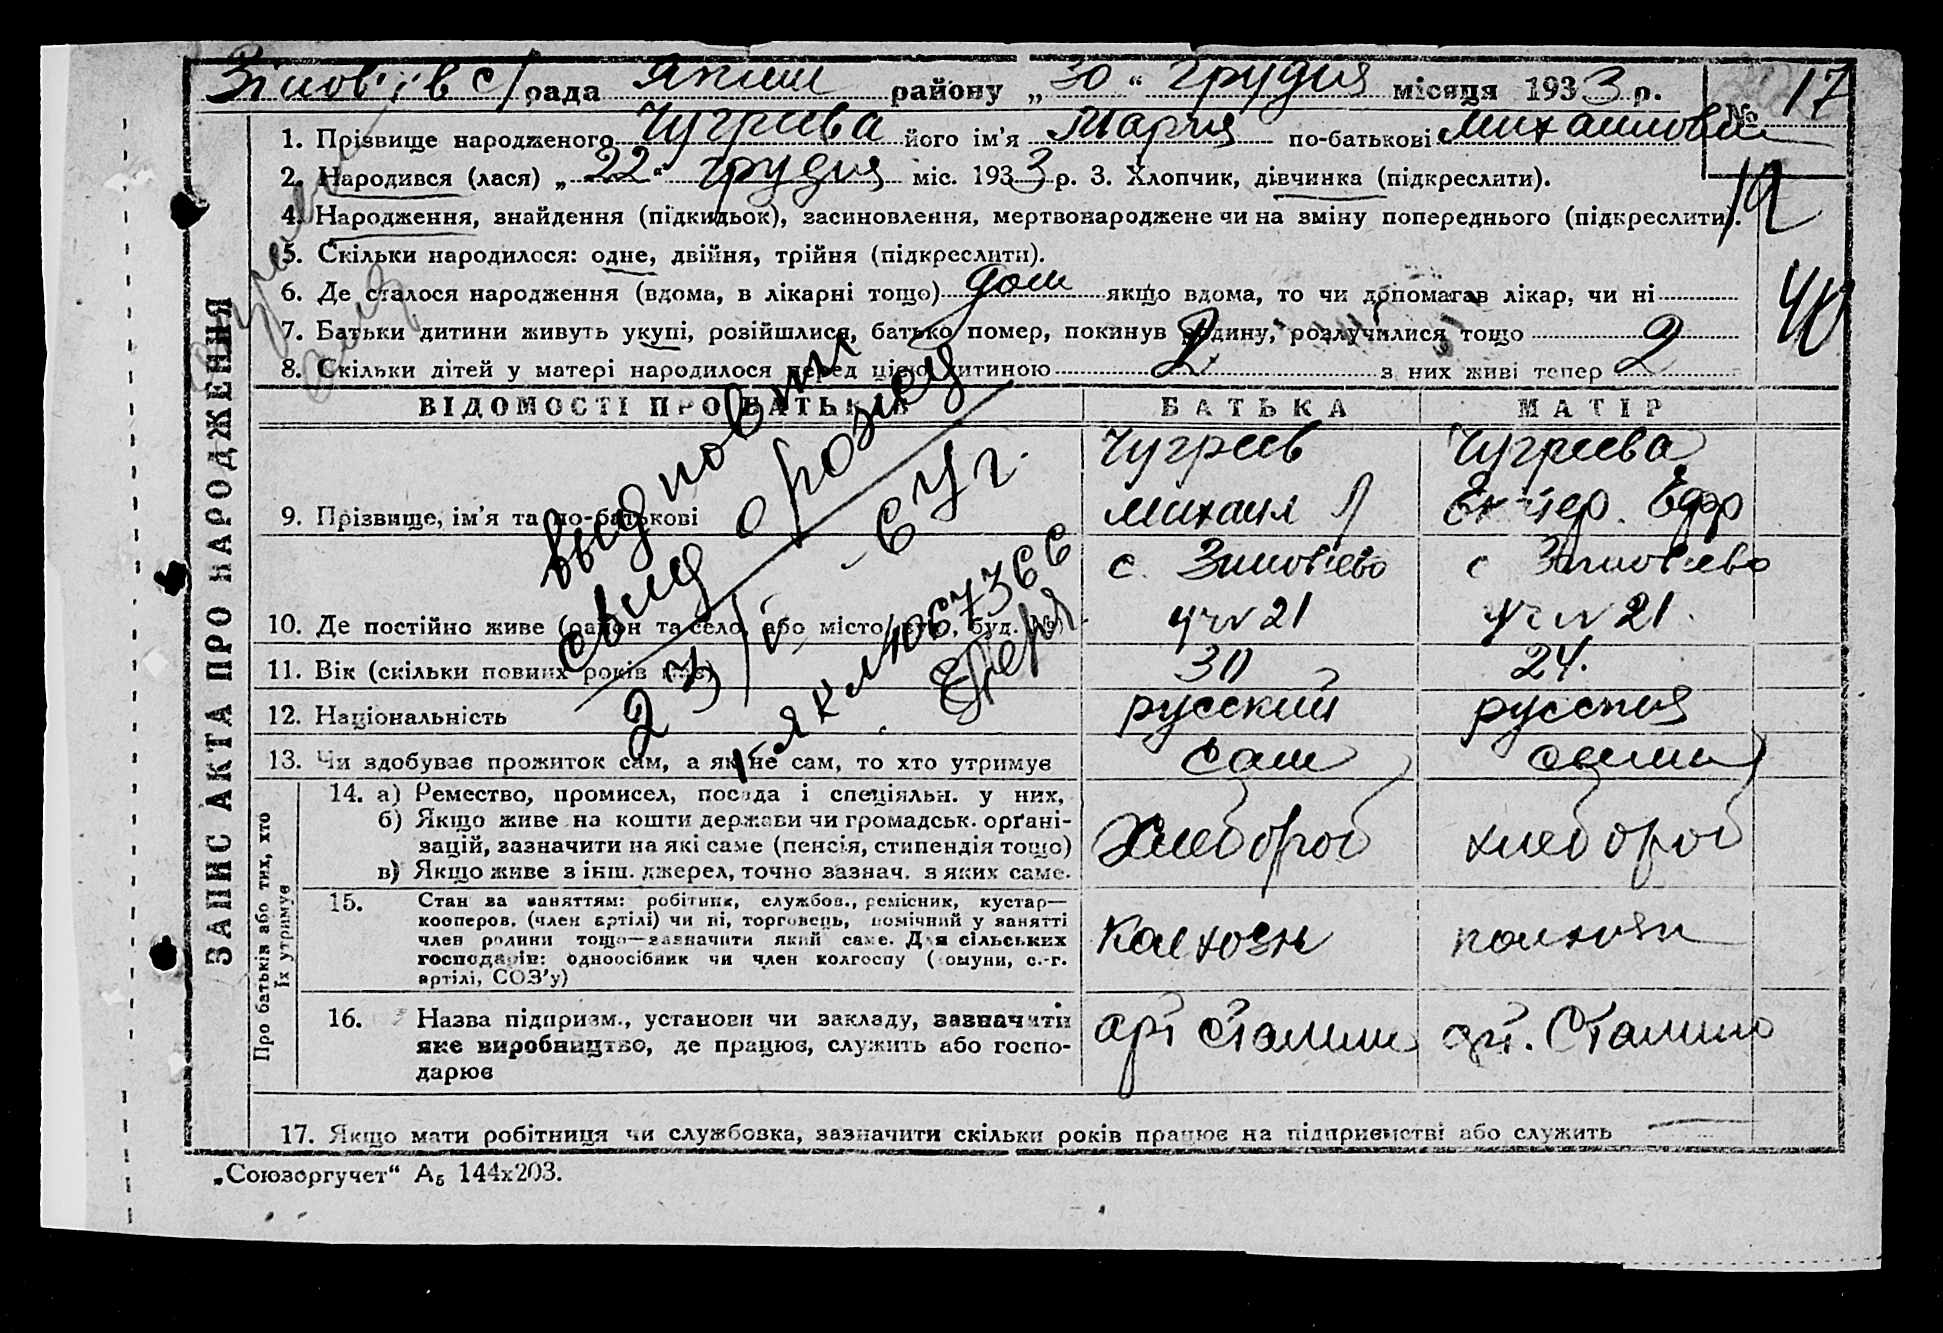 Зіновїв с/рада Яким району „30“ грудня місяця 1933 р. № 17
1. Прізвище народженого Чугреева його ім'я Мария по-батькові Михайловна
2. Народився (лася) „22“ грудня міс. 1933 р. 3. Хлопчик, дівчинка (підкреслити).
12
4. Народження, знайдення (підкидьок), засиновлення, мертвонароджене чи на зміну попереднього (підкреслити).
5. Скільки народилося: одне, двійня, трійня (підкреслити).
6. Де сталося народження (вдома, в лікарні тощо) дом якщо вдома, то чи допомагав лікар, чи ні
40
7. Батьки дитини живуть укупі, розійшлися, батько помер, покинув родину, розлучилися тощо
8. Скільки дітей у матері народилося перед цією дитиною 2 з них живі тепер 2
ВІДОМОСТІ ПРО БАТЬКІВ БАТЬКА МАТІР
9. Прізвище, ім'я та по-батькові Чугреев Михаил Чугреева Екатер. Ефр
10. Де постійно живе (район та село, або місто, вул., буд. №) с. Зиновіево уч № 21 с Зиновіево уч № 21.
11. Вік (скільки повних років має) 30 24.
12. Національність русский русская
13. Чи здобуває прожиток сам, а як не сам, то хто утримує сам
14. а) Ремество, промисел, посада і спеціяльн. у них, Хлебороб хлебороб
б) Якщо живе на кошти держави чи громадськ. орґані-
зацій, зазначити на які саме (пенсія, стипендія тощо)
в) Якщо живе з інш. джерел, точно зазнач. з яких саме.
15. Стан за заняттям: робітник, службов., ремісник, кустар— Колхозн колхозн
кооперов. (член артілі) чи ні, торговець, помічний у занятті
член родини тощо—зазначити який саме. Для сільських
господарів: одноосібник чи член колгоспу (комуни, с.-г.
артілі, СОЗ'у)
16. Назва підприєм., установи чи закладу, зазначити арт Сталина арт. Сталина
яке виробництво, де працює, служить або госпо-
дарює
17. Якщо мати робітниця чи службовка, зазначити скільки років працює на підприємстві або служить
„Союзоргучет“ А₅ 144х203.
ЗАПИС АКТА ПРО НАРОДЖЕННЯ
Про батьків або тих, хто
їх утримує
выд повт
свид о розыску
23/V - 6 У г.
1-ЯК № 1067366